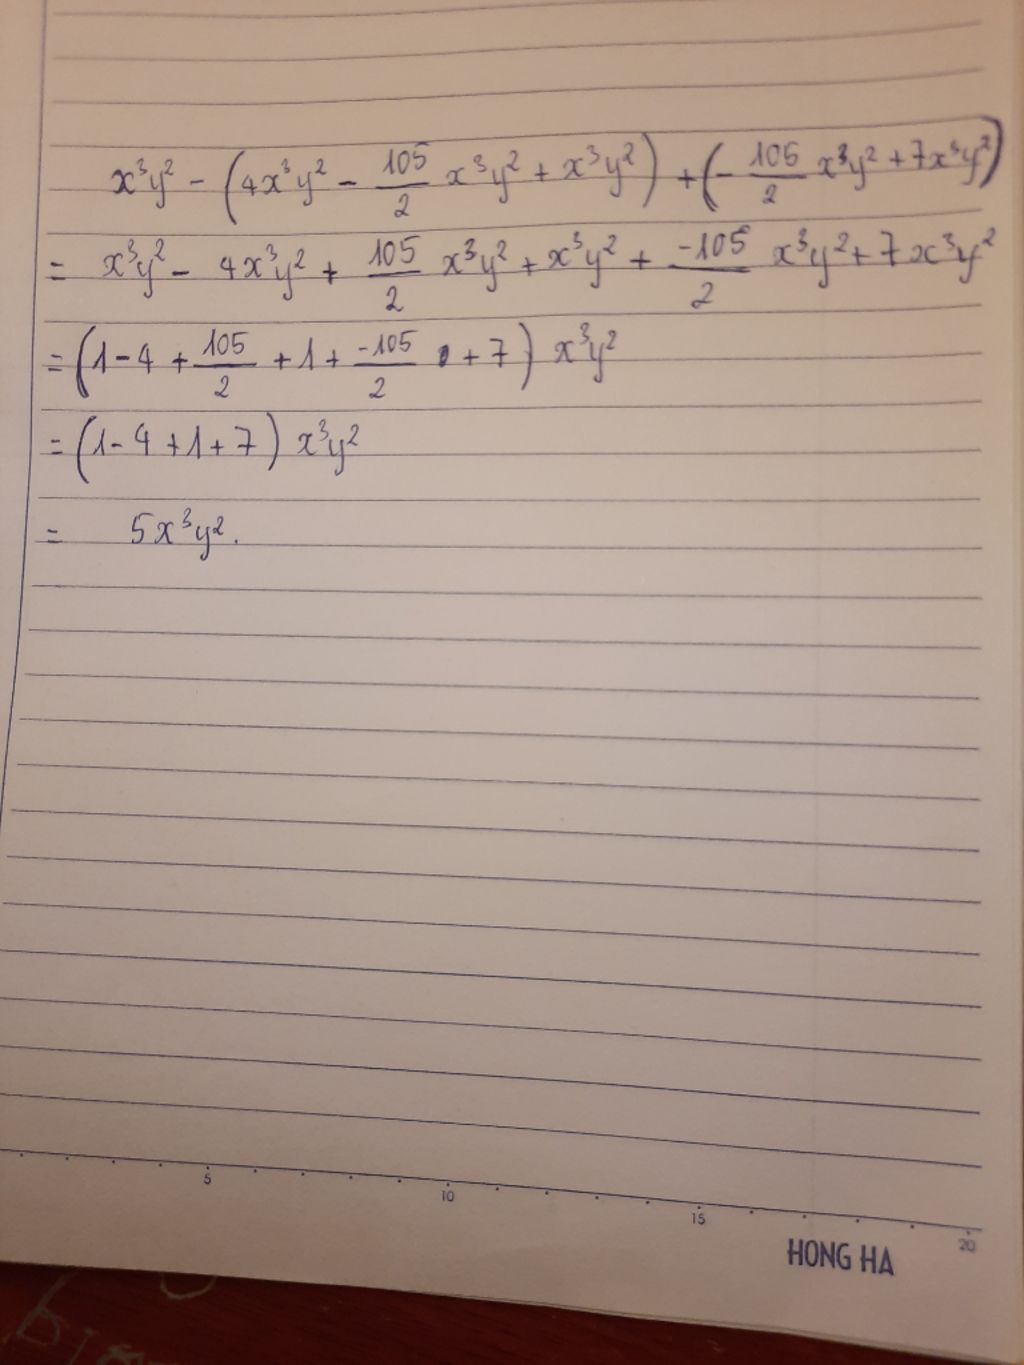 x³y² - (4x³y² - 105/2 x³y² + x³y²) + (- 105/2 x³y² + 7x³y²)
= x³y² - 4x³y² + 105/2 x³y² + x³y² + -105/2 x³y² + 7x³y²
= (1 - 4 + 105/2 + 1 + -105/2 + 7) x³y²
= (1 - 4 + 1 + 7) x³y²
= 5x³y².
5 10 15 20
HONG HA